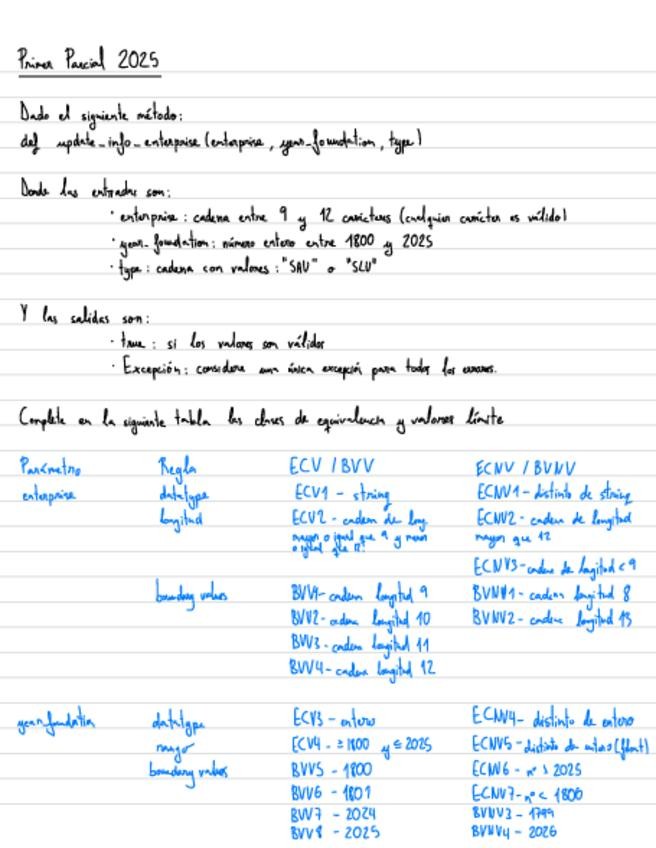 Primer Parcial 2025
Dado el siguiente método:
def update_info_enterprise (enterprise, year_foundation, type)
Donde las entradas son:
· enterprise: cadena entre 9 y 12 carácteres (cualquier carácter es válido)
· year_foundation: número entero entre 1800 y 2025
· type: cadena con valores: "SAU" o "SLU"
Y las salidas son:
· true: si los valores son válidos
· Excepción: considere una única excepción para todos los errores.
Complete en la siguiente tabla las clases de equivalencia y valores límite
Parámetro Regla ECV / BVV ECNV / BVNV
enterprise datatype ECV1 - string ECNV1 - distinto de string
longitud ECV2 - cadena de long. ECNV2 - cadena de longitud
mayor o igual que 9 y menor mayor que 12
o igual que 12.
ECNV3 - cadena de longitud < 9
boundary values BVV1 - cadena longitud 9 BVNV1 - cadena longitud 8
BVV2 - cadena longitud 10 BVNV2 - cadena longitud 13
BVV3 - cadena longitud 11
BVV4 - cadena longitud 12
datatype ECV3 - entero ECNV4 - distinto de entero
rango ECV4 - ≥1800 y ≤2025 ECNV5 - distinto de entero (float)
boundary values BVV5 - 1800 ECNV6 - nº > 2025
BVV6 - 1801 ECNV7 - nº < 1800
BVV7 - 2024 BVNV3 - 1799
BVV8 - 2025 BVNV4 - 2026